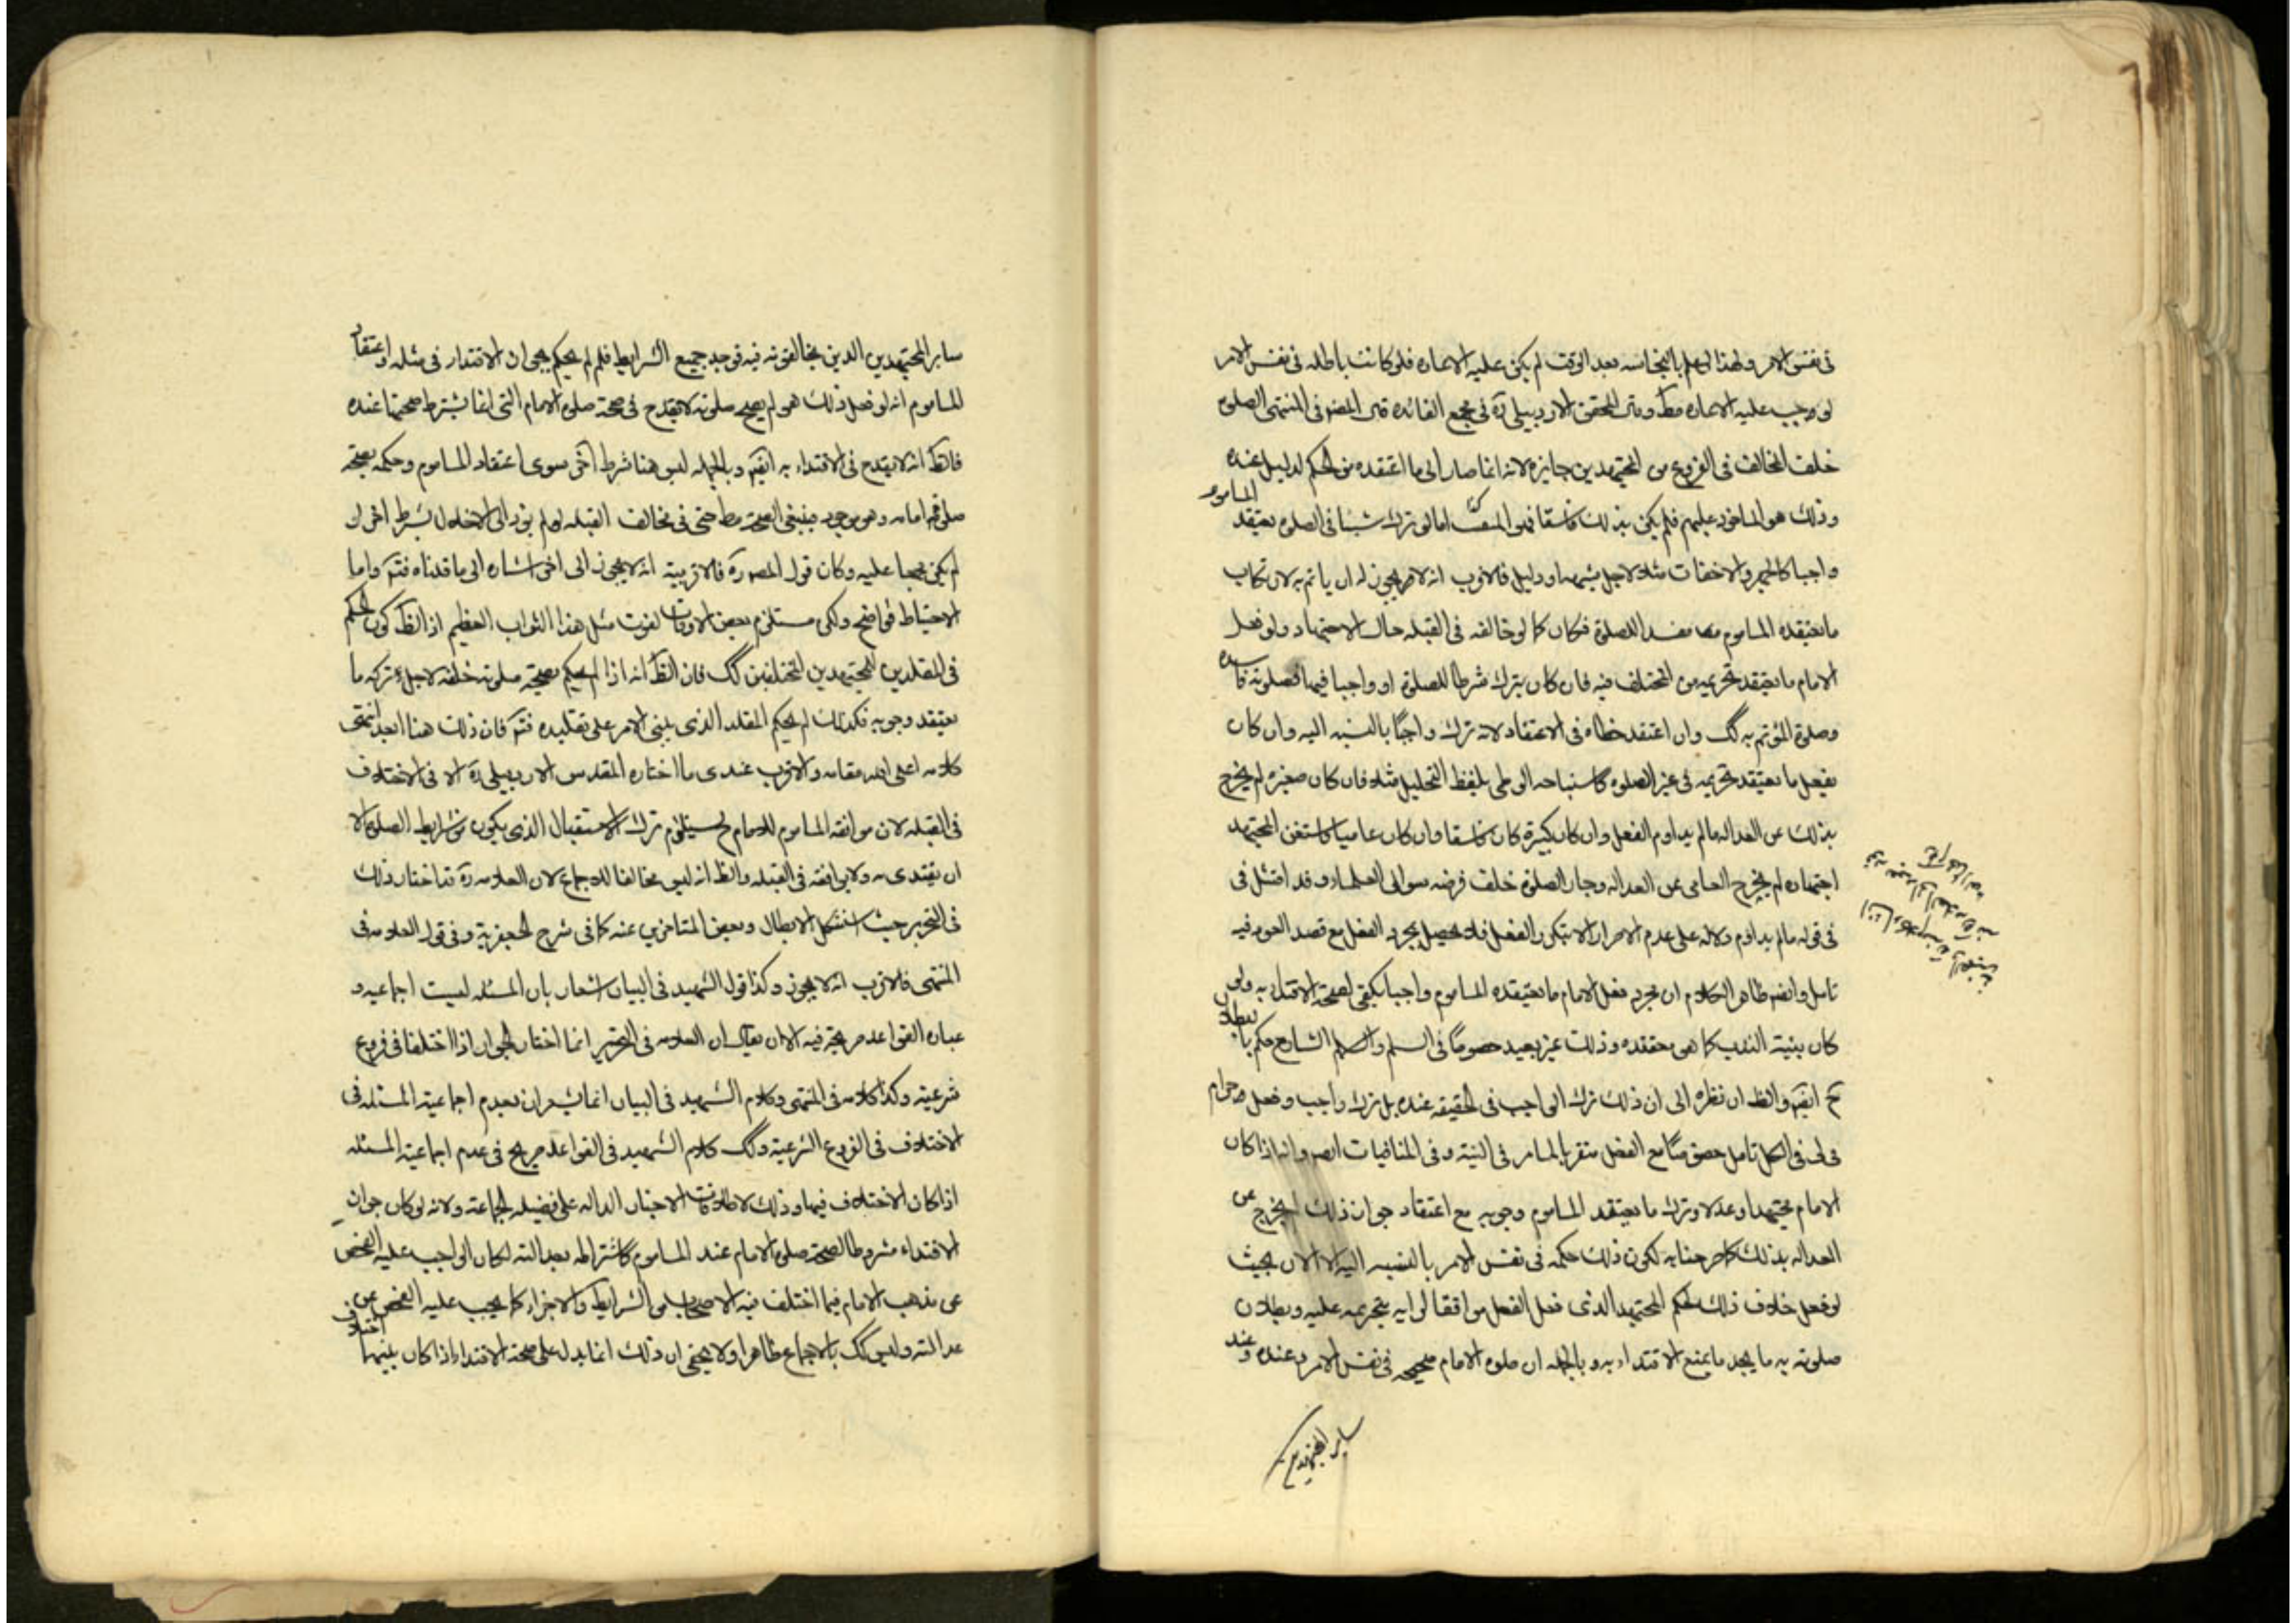 في نفس الامر ولهذا لو علم بالنجاسه بعد الوقت لم يكن عليه الاعاده فلو كانت باطله في نفس الامر
لوجب عليه الاعاده مط وقال المحقق الاردبيلي ره في مجمع الفائده قال المصر في المنتهى الصلوة
خلف المخالف في الفروع من المجتهدين جايزه لانه انما صار الى ما اعتقده من الحكم لدليل عنده
وذلك هو الماخوذ عليهم فلم يكن بذلك فاسقا اما لو ترك شيئا في الصلوه يعتقد الماموم
واجبا كالجهر والاخفات مثلا لاجل شبهه او دليل فالاقرب انه لا يجوز له ان ياتم به لارتكاب
ما يعتقده الماموم مفسد للصلوة فكان كما لو خالفه في القبله حال الاجتهاد ولو فعل
الامام ما يعتقد تحريمه من المختلف فيه فان كان بترك شرطا للصلوة او واجبا فيها فصلوته فاسده
وصلوة المؤتم به كك وان اعتقد خطاه في الاعتقاد لانه ترك واجبا بالنسبه اليه وان كان
بفعل ما يعتقد تحريمه في غير الصلوه كاستباحه الوطى بلفظ التحليل مثلا فان كان صغيره لم يخرج
بذلك عن العداله مالم يداوم الفعل وان كان كبيرة كان فاسقا وان كان عاميا فاستفتى المجتهد
اجتهاده لم يخرج العامى عن العداله وجاز الصلوة خلف فرضه سوال العلماء وقد امتثل في
في قوله مالم يداوم دلاله على عدم الاصرار الا بتكرر الفعل فلا يحصل بمجرد الفعل مع قصد العود فيه
تامل وايضه ظاهر الكلام ان مجرد فعل الامام ما يعتقده الماموم واجبا يكفي لصحة الاقتداء به ولو
كان بنيته الندب كما هو معتقده وذلك غير بعيد خصوصا في الشارع حكم بالبطلان
ح ايضه والظ ان نظره الى ان ذلك ترك الواجب في الحقيقه عنده بل ترك واجب وفعل حرام
في الكل تامل في النيته وفي المنافيات ايضه وانه اذا كان
الامام مجتهدا وعدلا وترك ما يعتقد الماموم وجوبه مع اعتقاد جواز ذلك لم يخرج عن
العداله بذلك لكون ذلك حكمه في نفس الامر بالنسبه اليه الان بحيث
لو فعل خلاف ذلك لحكم المجتهد الذي فعل الفعل موافقا لرايه بتحريمه عليه وبطلان
صلوته به ما يجد ما يمنع الاقتداء به وبالجمله ان صلوه الامام صحيحه في نفس الامر عنده وعند
ساير المجتهدين
ساير المجتهدين الذين يخالفونه فيه فوجد جميع الشرايط فلم لم يحكم بجواز الاقتداء في مثله واعتقاد
الماموم انه لو فعل ذلك هو لم يصح صلوته لا يقدح في صحة صلوه الامام التي انما يشترط صحتها عنده
فالظ انه لا يقدح في الاقتداء به ايضه وبالجمله ليس هنا شرط اخر سوى اعتقاد الماموم وحكمه بصحة
صلوة امامه وهو موجود فينبغي الصحة مط حتى في مخالف القبله لو لم يؤد الى الاخلال بشرط اخر لو
لم يكن مجمعا عليه وكان قول المصره فالاقرب انه لا يجوز الى اخر اشاره الى ما قلناه فتم واما
الاحتياط فواضح ولكن مستلزم بعض الاوقات لفوت مثل هذا الثواب العظيم اذ الظ كون الحكم
في المقلدين للمجتهدين المختلفين كك فان الظ انه اذا لم يحكم بصحة صلوته خلفه لاجل تركه ما
يعتقد وجوبه فكذلك لم يحكم المقلد الذي يبنى الامر على تقليده فتم فان ذلك هنا ابعد انتهى
كلامه اعلى الله مقامه والاقرب عندى ما اختاره المقدس الاردبيلي ره الا في الاختلاف
في القبله لان موافقه الماموم للامام ح يستلزم ترك الاستقبال الذي يكون من شرايط الصلوة الا
ان يقتدى به ولا يوافقه في القبله والظ انه ليس مخالفا للاجماع لان العلامه ره قد اختار ذلك
في التحرير حيث استشكل الابطال وبعض المتاخرين عنه كما في شرح الجعفرية وفي قول العلامه في
المنتهى فالاقرب انه لا يجوز وكذا قول الشهيد في البيان اشعار بان المسئله ليست اجماعيه و
عباره القواعد صريحة فيه الا ان يقال ان العلامه في التحرير انما اختار الجواز اذا اختلفا في فروع
شرعيته وكذا كلامه في المنتهى وكلام الشهيد في البيان انما يشعران بعدم اجماعية المسئله في
الاختلاف في الفروع الشرعيته وكك كلام الشهيد في القواعد صريح في عدم اجماعية المسئله
اذا كان الاختلاف فيها وذلك لاطلاقات الاخبار الداله على فضيله الجماعة ولانه لو كان جواز
الاقتداء مشروطا لصحة صلوه الامام عند الماموم كاشتراط عدالته لكان الواجب عليه الفحص
عن مذهب الامام فيما اختلف فيه الاصحاب من الشرايط والاجزاء كما يجب عليه الفحص عن
عدالته وليس كك بالاجماع ظاهرا ولا يخفى ان ذلك انما يدل على صحة الاقتداء اذا كان بينهما اختلاف